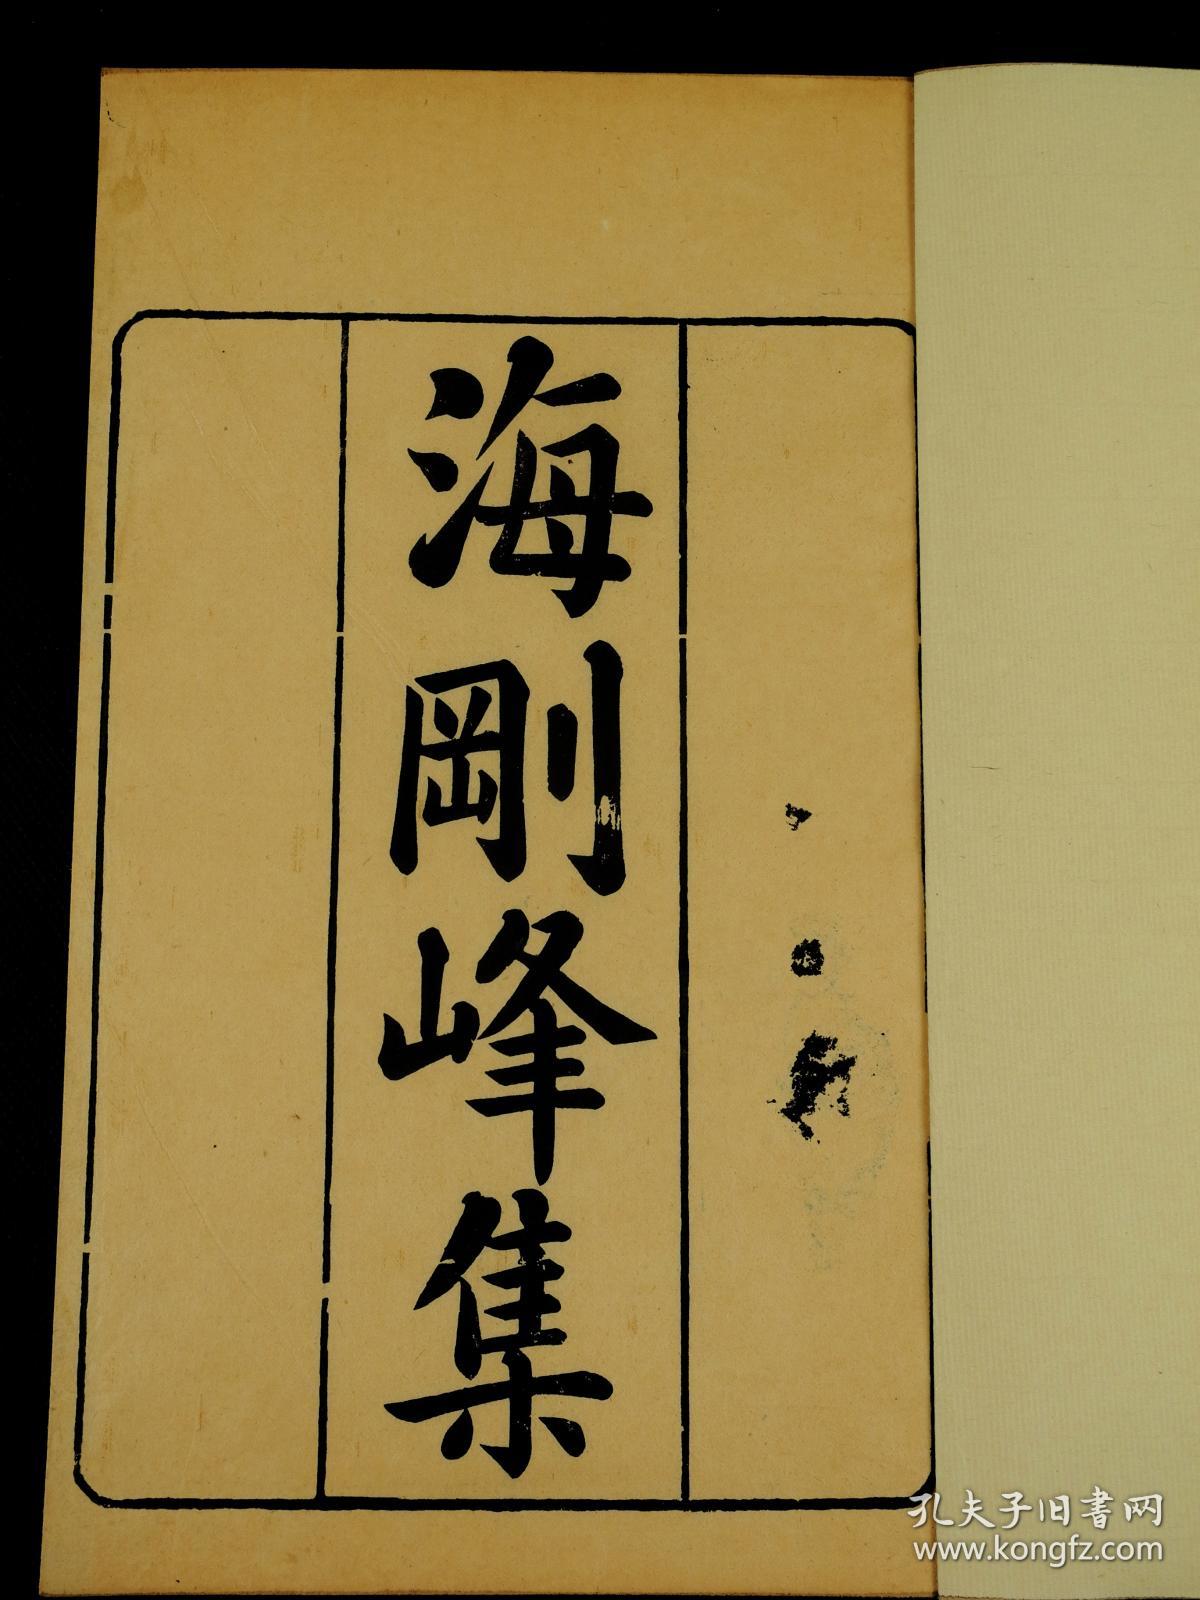 海剛峰集
孔夫子旧书网
www.kongfz.com